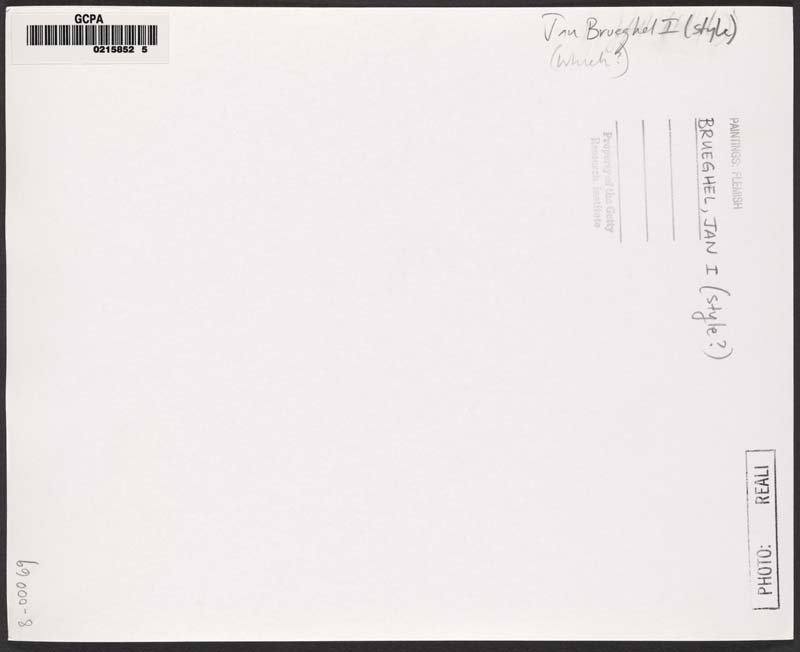 GCPA
0215852 5
Jan Brueghel I (style)
(which?)
PAINTINGS: FLEMISH
BRUEGHEL, JAN I (style?)
Property of the Getty
Research Institute
PHOTO: REALI
69000-8